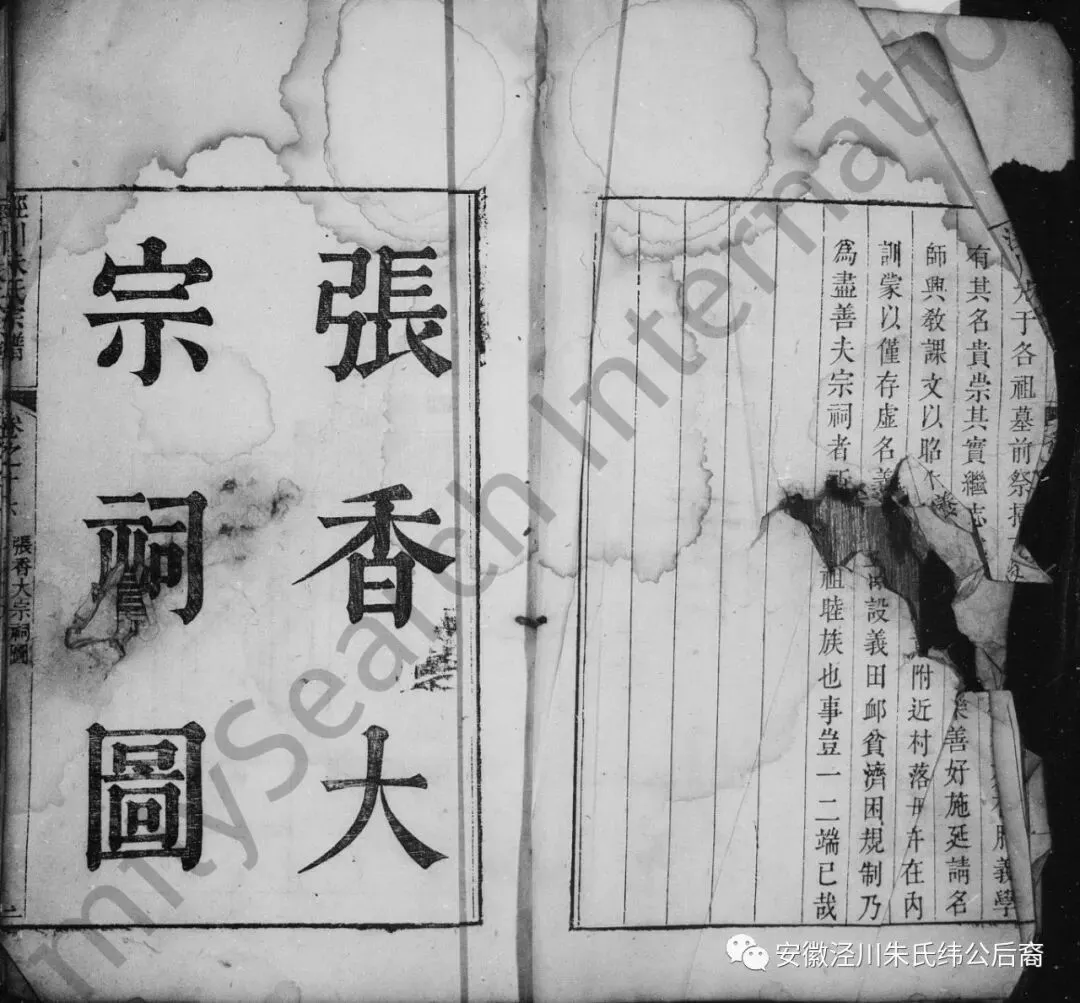 于各祖墓前祭掃
義學
有其名貴崇其實繼志
樂善好施延請名
師興教課文以昭
附近村落毋許在內
訓蒙以僅存虛名義
設義田卹貧濟困規制乃
為盡善夫宗祠者
祖睦族也事豈一二端已哉
張香大
宗祠圖
涇川朱氏宗譜
卷之
張香大宗祠圖
FamilySearch International
安徽泾川朱氏纬公后裔